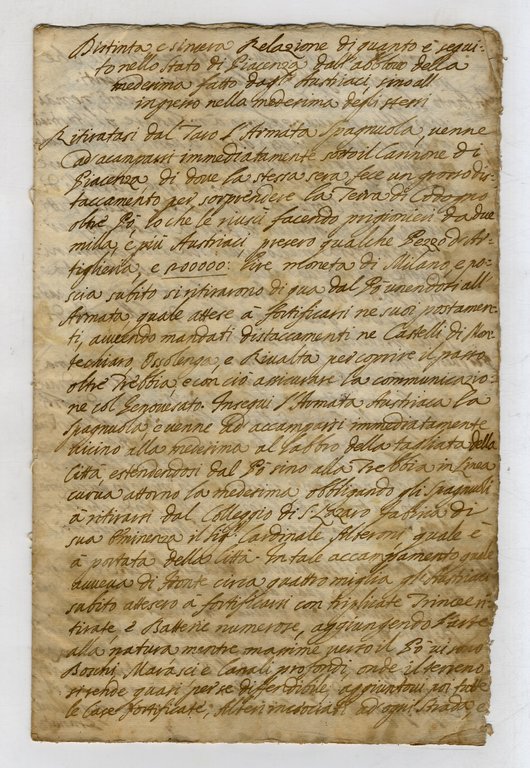 Distinta e sincera Relazione di quanto è segui-
to nello stato di Piacenza dall'
medema fatto dagl' Austriaci, sino all'
ingresso nella medesima degl' stessi
Ritiratasi dal Taro l'Armata Spagnuola, venne
ad' acamparsi immediatamente sotto il Cannone di
Piacenza, di dove la stessa sera fece un grosso dis-
taccamento per sorprendere la Terra di Codogno
oltre Pò, lo che le riuscì facendo prigionieri da due
milla, e più Austriaci, presero qualche Pezzo di Ar-
tiglieria, e 200000: Lire moneta di Milano, e po-
scia subito si ritirarono di qua dal Pò unendosi all'
Armata quale attese à fortificarsi ne suoi postamen-
ti, avvendo mandati distaccamenti ne Castelli di Mon-
techiaro, Ossolengo, e Rivalta per coprire il paese
oltre Trebbia, e con ciò assicurare la communicazio-
ne col Genovesato. Inseguì l'Armata Austriaca la
Spagnuola e venne ad' accamparsi immediatamente
vicino alla medesima al labbro della tagliata della
Città, estendendosi dal Pò sino alla Trebbia in Linea
curva attorno la medesima obbligando gli Spagnuoli
à ritirarsi dal Colleggio di S. Lazaro fabrica di
sua Eminenza il Sig. Cardinale Alberoni quale è
à portata della Città. In tale accampamento quale
avveva di fronte circa quattro miglia gli Austriaci
subito attesero à fortificarsi con triplicate Trincee
tirate, è Batterie numerose, aggiungendo l'arte
alla natura mentre massime verso il Pò vi sono
Boschi, Marasci e Canali profondi, onde il terreno
si rende quasi per se diffendibile, aggiuntovi poi tutte
le Case fortificate, Alberi ad' ogni Strada, e